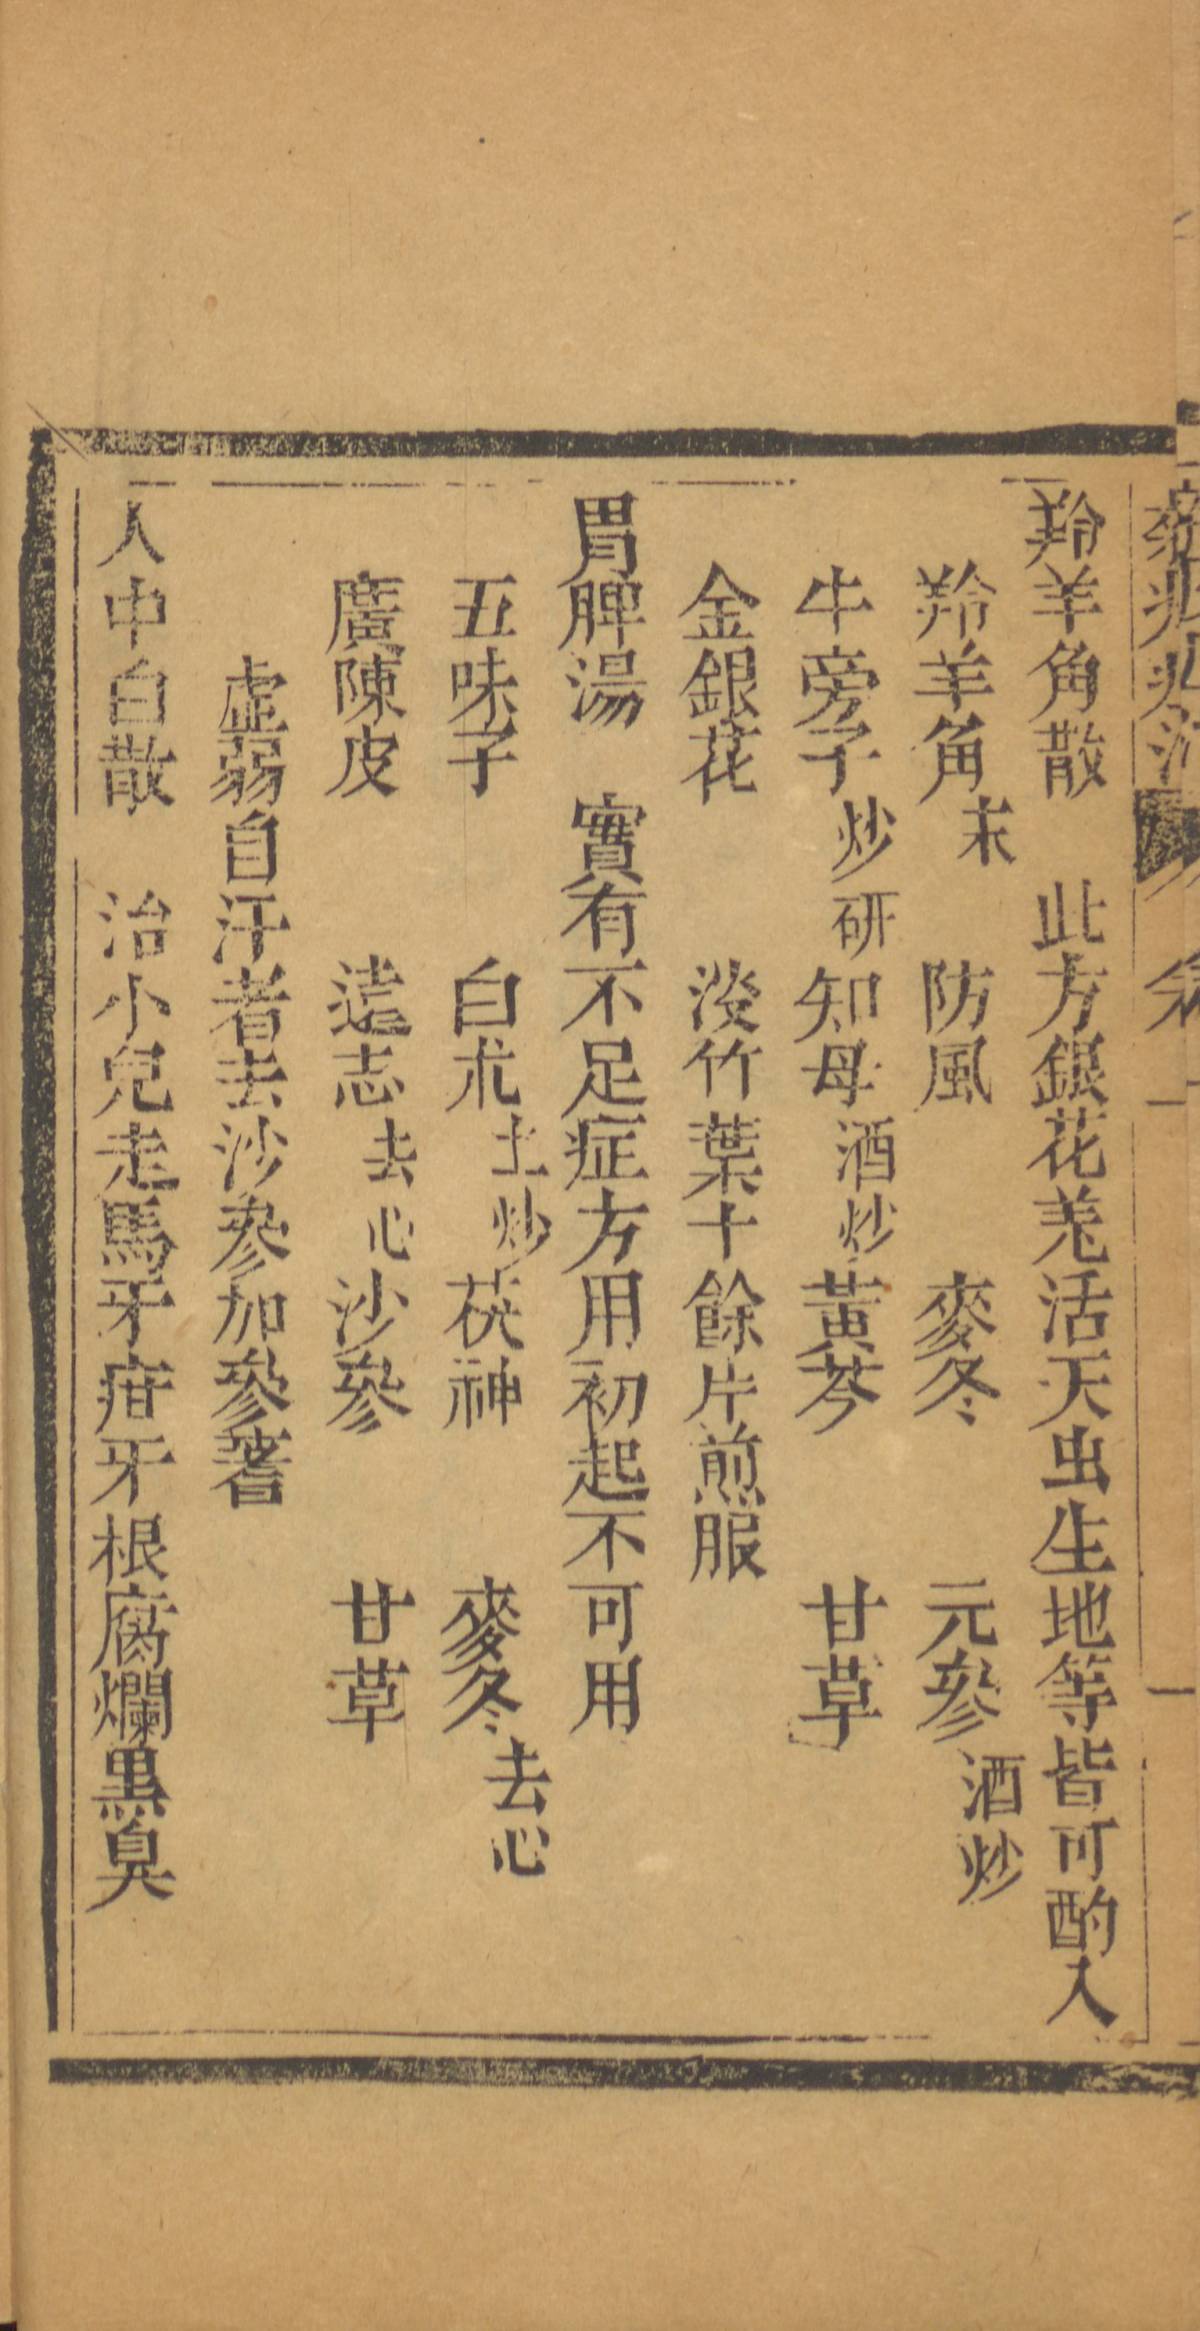 羚羊角散　此方銀花羌活天虫生地等皆可酌入
羚羊角末　防風　麥冬　元參酒炒
牛旁子炒研　知母酒炒　黃芩　甘草
金銀花　淡竹葉十餘片煎服
胃脾湯　實有不足症方用初起不可用
五味子　白朮土炒　茯神　麥冬去心
廣陳皮　遠志去心　沙參　甘草
虛弱自汗者去沙參加參蓍
人中白散　治小兒走馬牙疳牙根腐爛黑臭